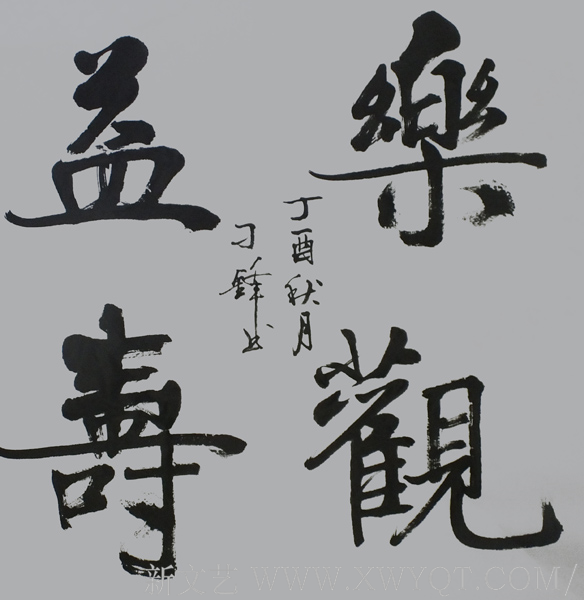 樂觀
益壽
丁酉秋月
刁鋒书
新文艺 WWW.XWYQT.COM/